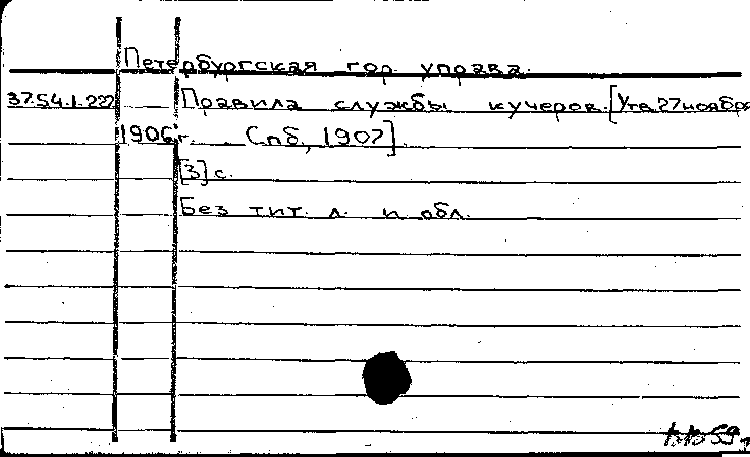 Петербургская гор. управа.
37.54.1.222 Правила службы кучеров. [Утв. 27 ноября
1906 г. Спб, 1907].
[3] с.
Без тит. л. и обл.
59